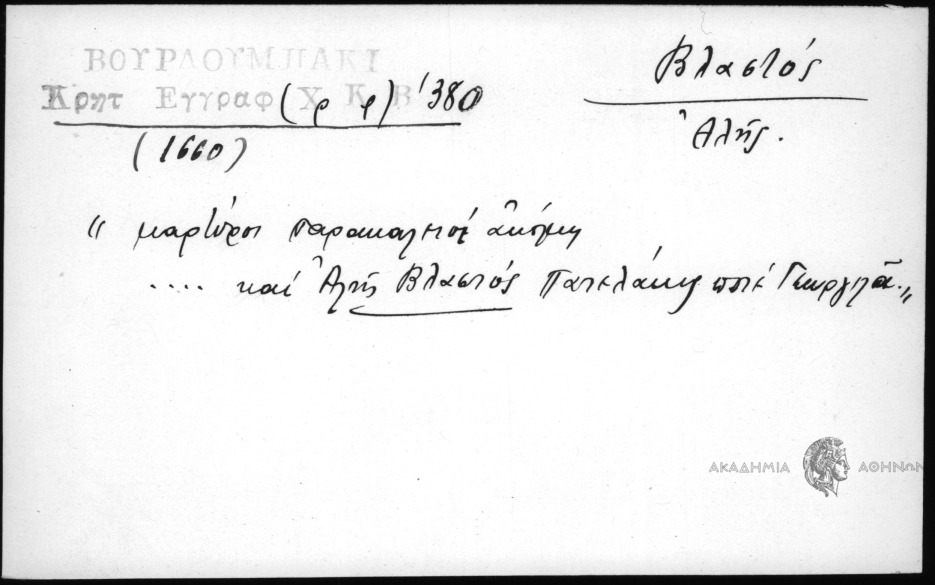 ΒΟΥΡΔΟΥΜΠΑΚΙ
Κρητ Εγγραφ Χ Κ Β
(ρ φ) '380
(1660)
Βλαστός
Ἀλῆς.
“ μαρτύροι παρακαλετοί ἀκόμη
.... καί Ἀλῆς Βλαστός Πατελάκης ποτέ Γεωργιλᾶ.„
ΑΚΑΔΗΜΙΑ ΑΘΗΝΩΝ